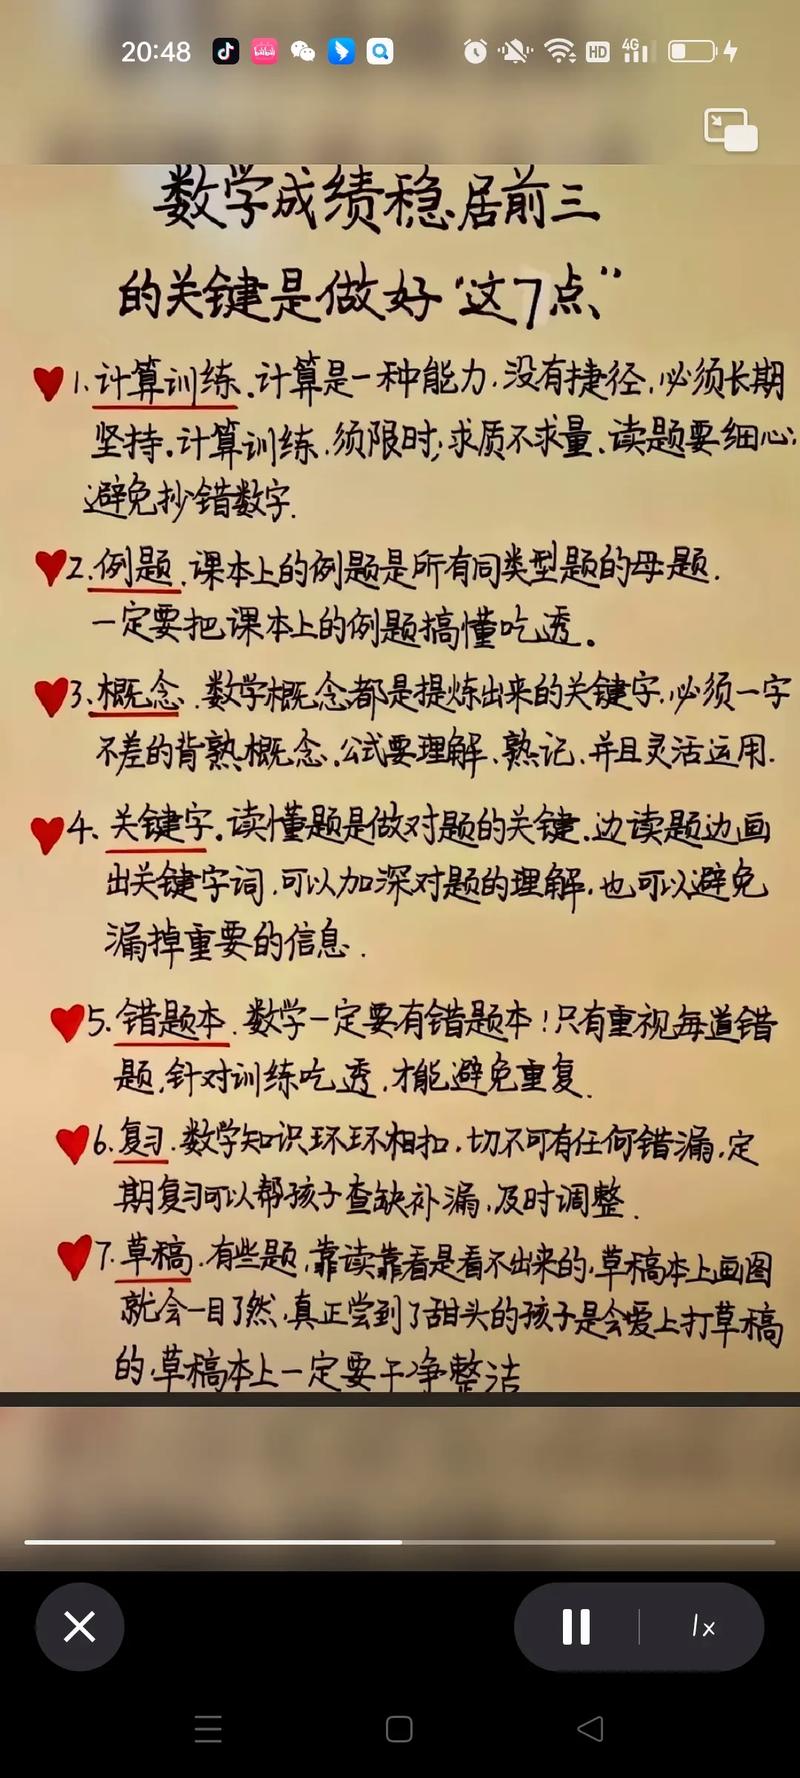 20:48
HD
4G
数学成绩稳居前三
的关键是做好“这7点”
1.计算训练.计算是一种能力.没有捷径.必须长期
坚持.计算训练.须限时;求质不求量.读题要细心;
避免抄错数字.
2.例题.课本上的例题是所有同类型题的母题.
一定要把课本上的例题搞懂吃透。
3.概念.数学概念都是提炼出来的关键字.必须一字
不差的背熟概念.公式要理解、熟记、并且灵活运用.
4、关键字.读懂题是做对题的关键.边读题边画
出关键字词.可以加深对题的理解.也可以避免
漏掉重要的信息.
5.错题本.数学一定要有错题本!只有重视每道错
题,针对训练吃透.才能避免重复.
6.复习.数学知识环环相扣.切不可有任何错漏.定
期复习可以帮孩子查缺补漏,及时调整.
7.草稿.有些题,靠读靠看是看不出来的.草稿本上画图
就会一目了然.真正尝到了甜头的孩子是会爱上打草稿
的.草稿本上一定要干净整洁
1x